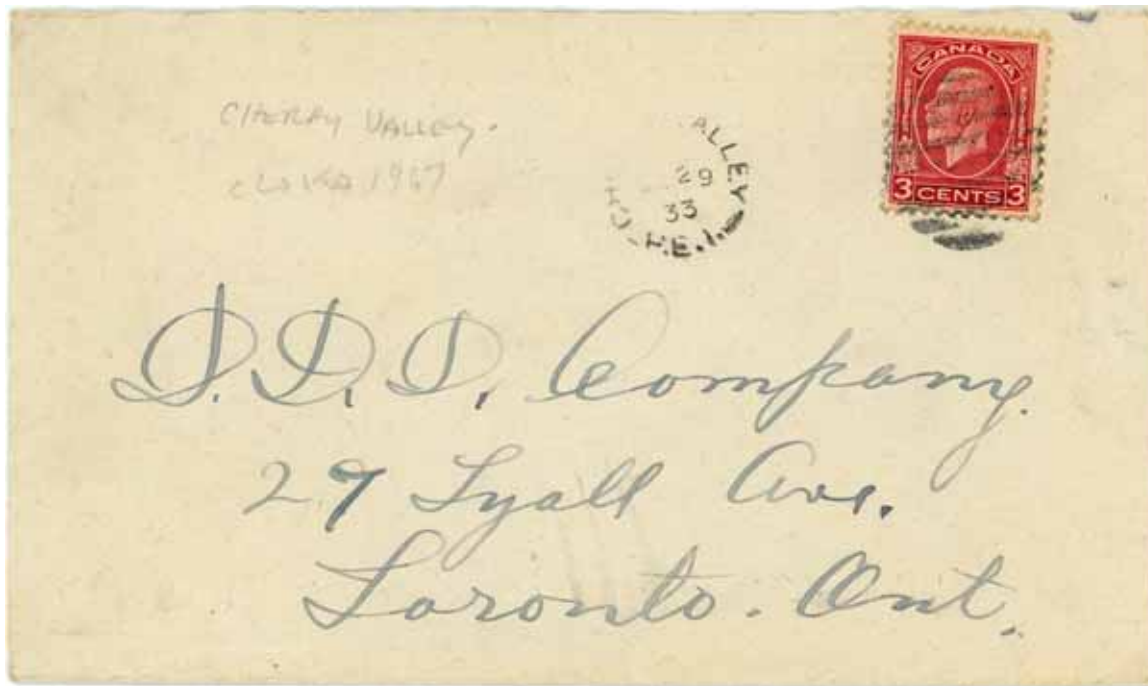 CHERRY VALLEY.
1967
ALLEY
29
33
CH P.E.I.
CANADA
3 CENTS 3
D.D.D. Company.
27 Lyall Ave.
Toronto. Ont.